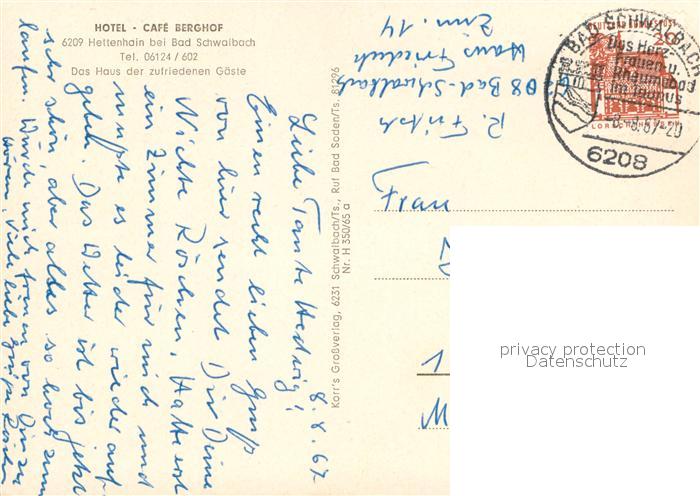 HOTEL - CAFÉ BERGHOF
6209 Hettenhain bei Bad Schwalbach
Tel. 06124 / 602
Das Haus der zufriedenen Gäste
8.8.67
Liebe Tante Hedwig!
Einen recht lieben Gruß
von hier sendet Dir Deine
Nichte Röschen. Hatte erst
ein Zimmer für mich und
mußte es leider wieder auf-
geben. Das Wetter ist bis jetzt
sehr schön, aber alles so hoch zum
laufen. Würde mich freuen von Dir zu
hören. Viele liebe Grüße Röschen
Korr's Großverlag, 6231 Schwalbach/Ts., Ruf Bad Soden/Ts. 81296
Nr. H 350/65 a
R. Fritsch
08 Bad-Schwalbach
Haus Friedrich
Zimm. 14
BAD SCHWALBACH
Das Herz-
Frauen-u.
Rheumabad
im Taunus
-8.-8.67-20
6208
DEUTSCHE BUNDESPOST
20
LORSCH/HESSEN
Frau
1
M
privacy protection
Datenschutz